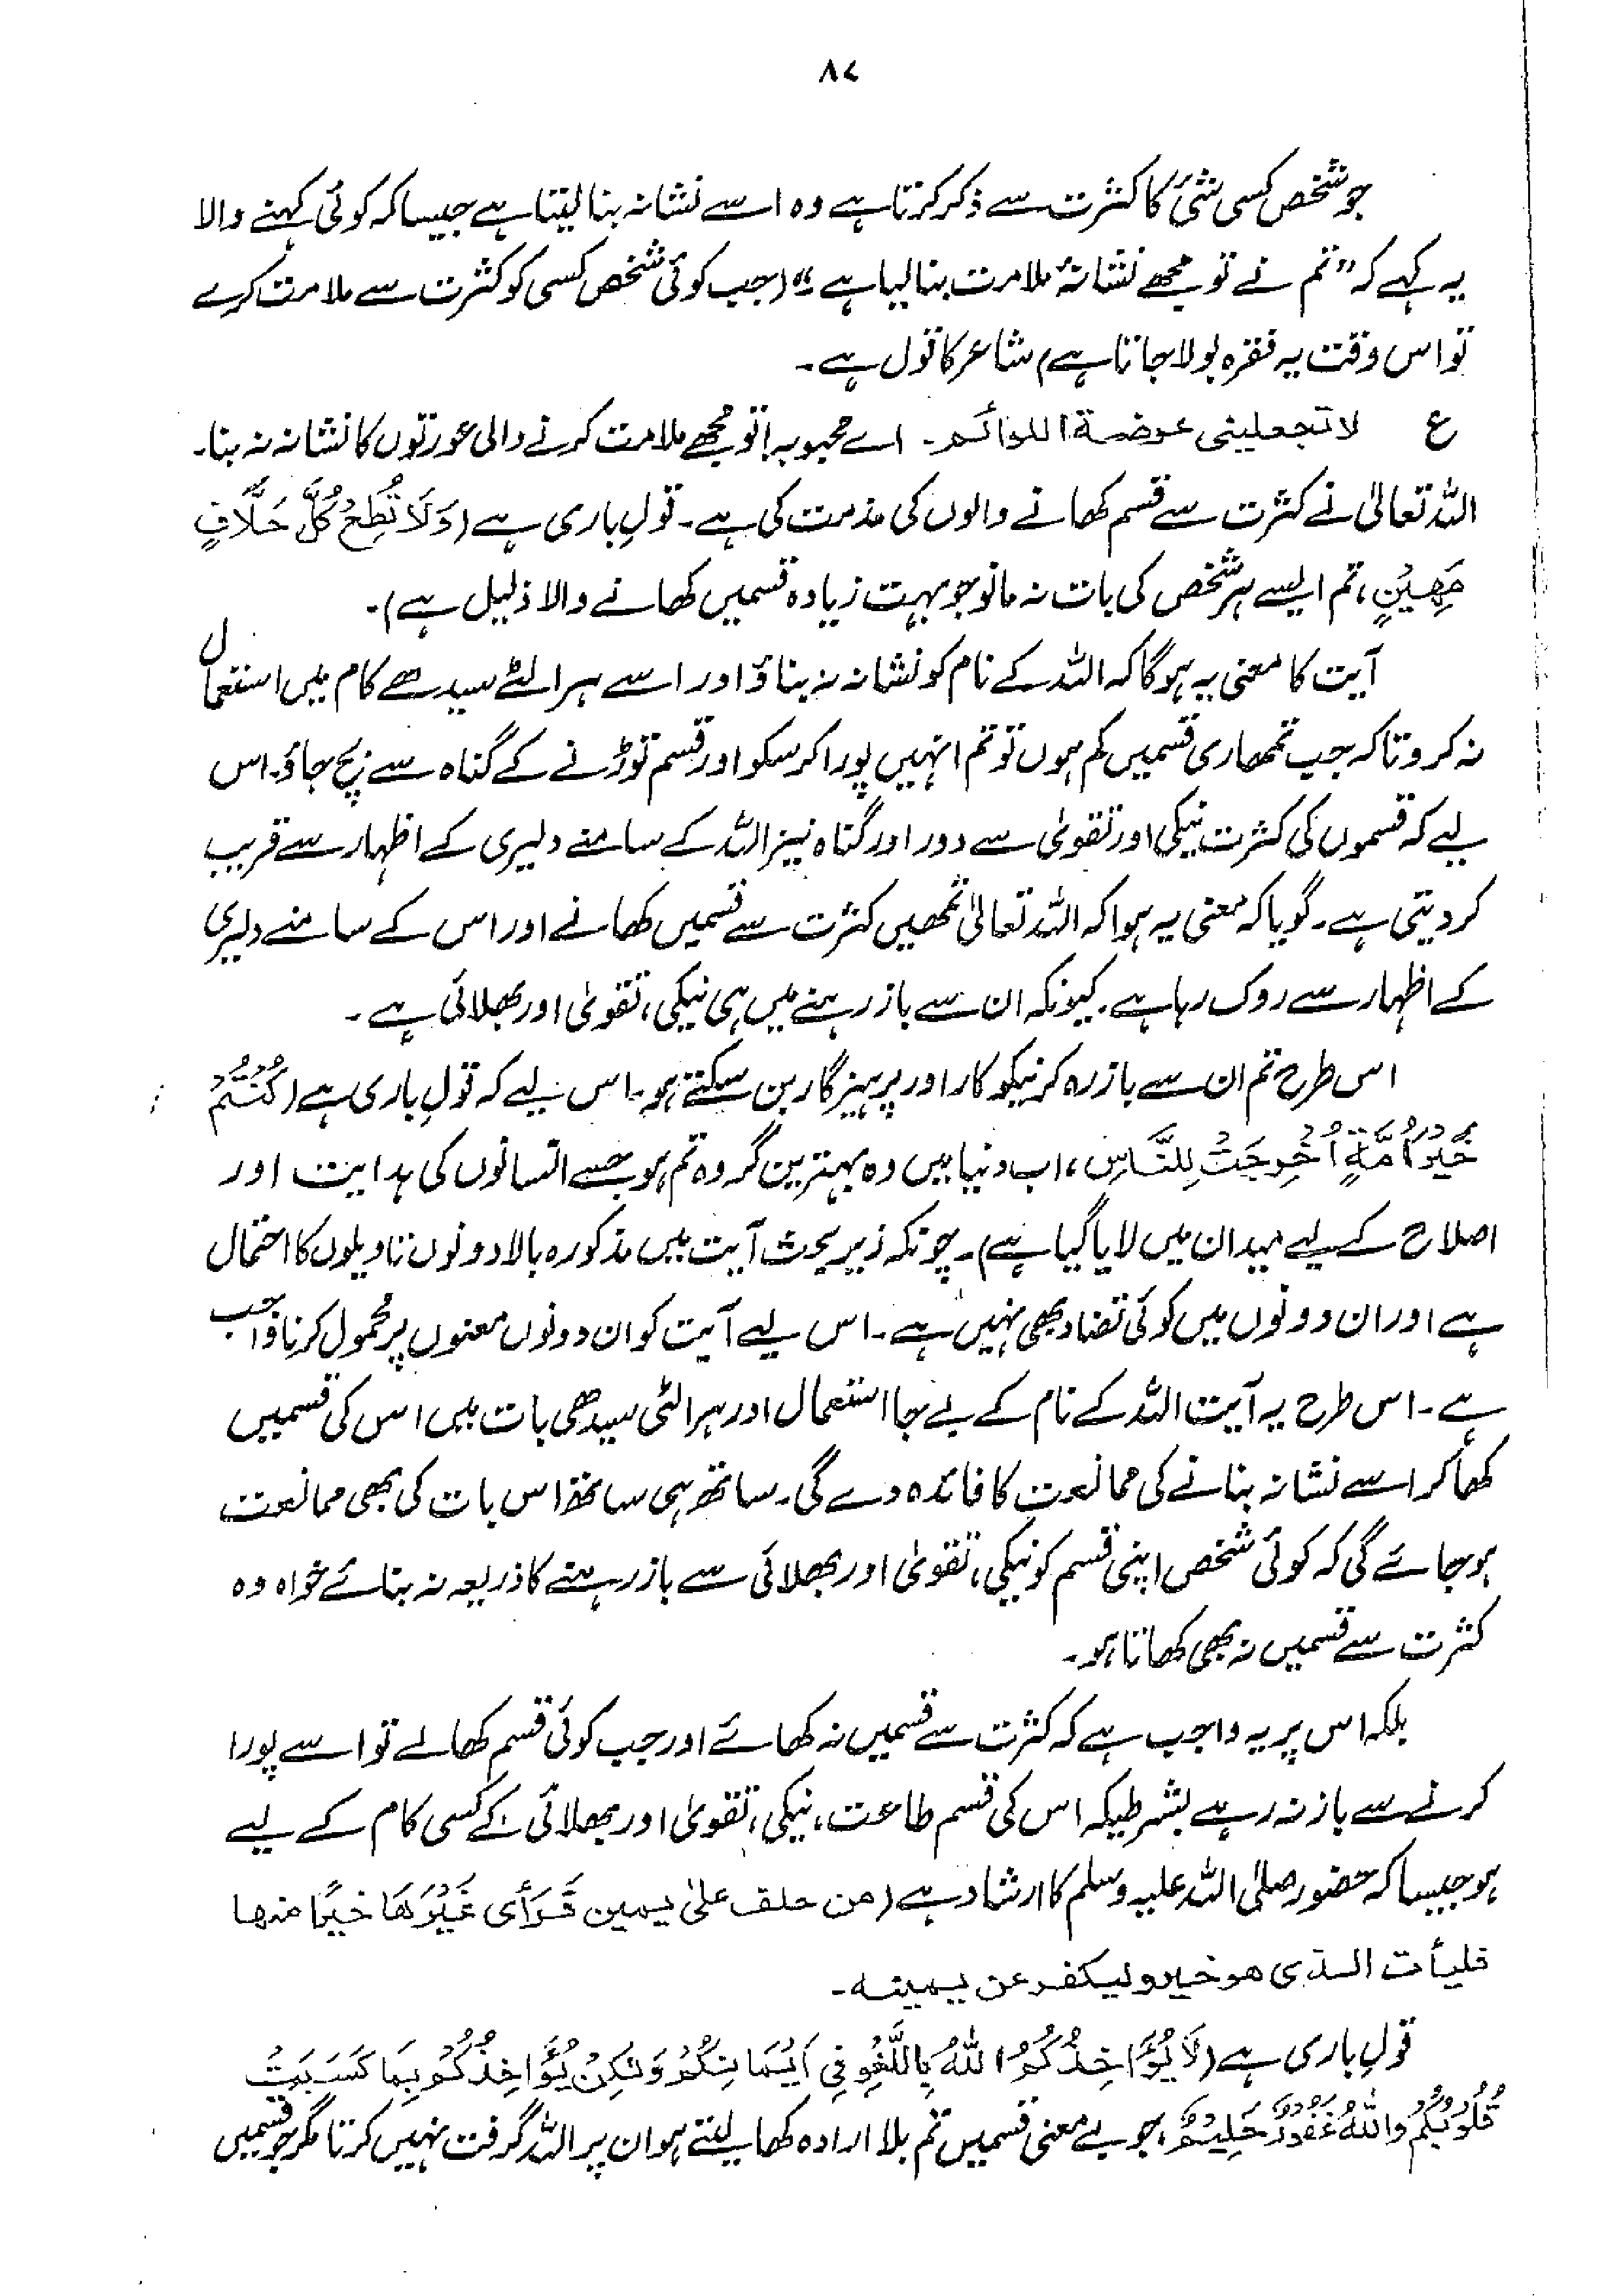 ۸۷
جو شخص کسی شئ کا کثرت سے ذکر کرتا ہے وہ اسے نشانہ بنا لیتا ہے جیسا کہ کوئی کہنے والا
یہ کہے کہ "تم نے تو مجھے نشانۂ ملامت بنا لیا ہے" (جب کوئی شخص کسی کو کثرت سے ملامت کرے
تو اس وقت یہ فقرہ بولا جاتا ہے) شاعر کا قول ہے۔
ع لا تجعلینی عرضۃ اللوائم۔ اے محبوبہ! تو مجھے ملامت کرنے والی عورتوں کا نشانہ نہ بنا۔
اللہ تعالیٰ نے کثرت سے قسم کھانے والوں کی مذمت کی ہے۔ قولِ باری ہے (وَلَا تُطِعْ كُلَّ حَلَّافٍ
مَهِيْنٍ، تم ایسے ہر شخص کی بات نہ مانو جو بہت زیادہ قسمیں کھانے والا ذلیل ہے)۔
آیت کا معنی یہ ہوگا کہ اللہ کے نام کو نشانہ نہ بناؤ اور اسے ہر الٹے سیدھے کام میں استعمال
نہ کرو تاکہ جب تمھاری قسمیں کم ہوں تو تم انہیں پورا کر سکو اور قسم توڑنے کے گناہ سے بچ جاؤ۔ اس
لیے کہ قسموں کی کثرت نیکی اور تقویٰ سے دور اور گناہ نیز اللہ کے سامنے دلیری کے اظہار سے قریب
کر دیتی ہے۔ گویا کہ معنی یہ ہوا کہ اللہ تعالیٰ تمھیں کثرت سے قسمیں کھانے اور اس کے سامنے دلیری
کے اظہار سے روک رہا ہے۔ کیونکہ ان سے باز رہنے میں ہی نیکی، تقویٰ اور بھلائی ہے۔
اس طرح تم ان سے باز رہ کر نیکو کار اور پرہیزگار بن سکتے ہو۔ اس لیے کہ قولِ باری ہے (كُنْتُمْ
خَيْرَ اُمَّةٍ اُخْرِجَتْ لِلنَّاسِ، اب دنیا میں وہ بہترین گروہ تم ہو جسے انسانوں کی ہدایت اور
اصلاح کے لیے میدان میں لایا گیا ہے)۔ چونکہ زیر بحث آیت میں مذکورہ بالا دونوں تاویلوں کا احتمال
ہے اور ان دونوں میں کوئی تضاد بھی نہیں ہے۔ اس لیے آیت کو ان دونوں معنوں پر محمول کرنا واجب
ہے۔ اس طرح یہ آیت اللہ کے نام کے بے جا استعمال اور ہر الٹی سیدھی بات میں اس کی قسمیں
کھا کر اسے نشانہ بنانے کی ممانعت کا فائدہ دے گی۔ ساتھ ہی ساتھ اس بات کی بھی ممانعت
ہو جائے گی کہ کوئی شخص اپنی قسم کو نیکی، تقویٰ اور بھلائی سے باز رہنے کا ذریعہ نہ بنائے خواہ وہ
کثرت سے قسمیں نہ بھی کھاتا ہو۔
بلکہ اس پر یہ واجب ہے کہ کثرت سے قسمیں نہ کھائے اور جب کوئی قسم کھالے تو اسے پورا
کرنے سے باز نہ رہے بشرطیکہ اس کی قسم طاعت، نیکی، تقویٰ اور بھلائی کے کسی کام کے لیے
ہو جیسا کہ حضور صلی اللہ علیہ وسلم کا ارشاد ہے (من حلف علیٰ یمین فَرَأى غَيْرَهَا خَيْرًا منها
فليأت الذی هو خير وليكفر عن يمينه۔
قولِ باری ہے (لَا يُؤَاخِذُكُمُ اللهُ بِاللَّغْوِ فِي اَيْمَانِكُمْ وَلٰكِنْ يُّؤَاخِذُكُمْ بِمَا كَسَبَتْ
قُلُوْبُكُمْ وَاللهُ غَفُوْرٌ حَلِيْمٌ، جو بے معنی قسمیں تم بلا ارادہ کھا لیتے ہو ان پر اللہ گرفت نہیں کرتا مگر جو قسمیں